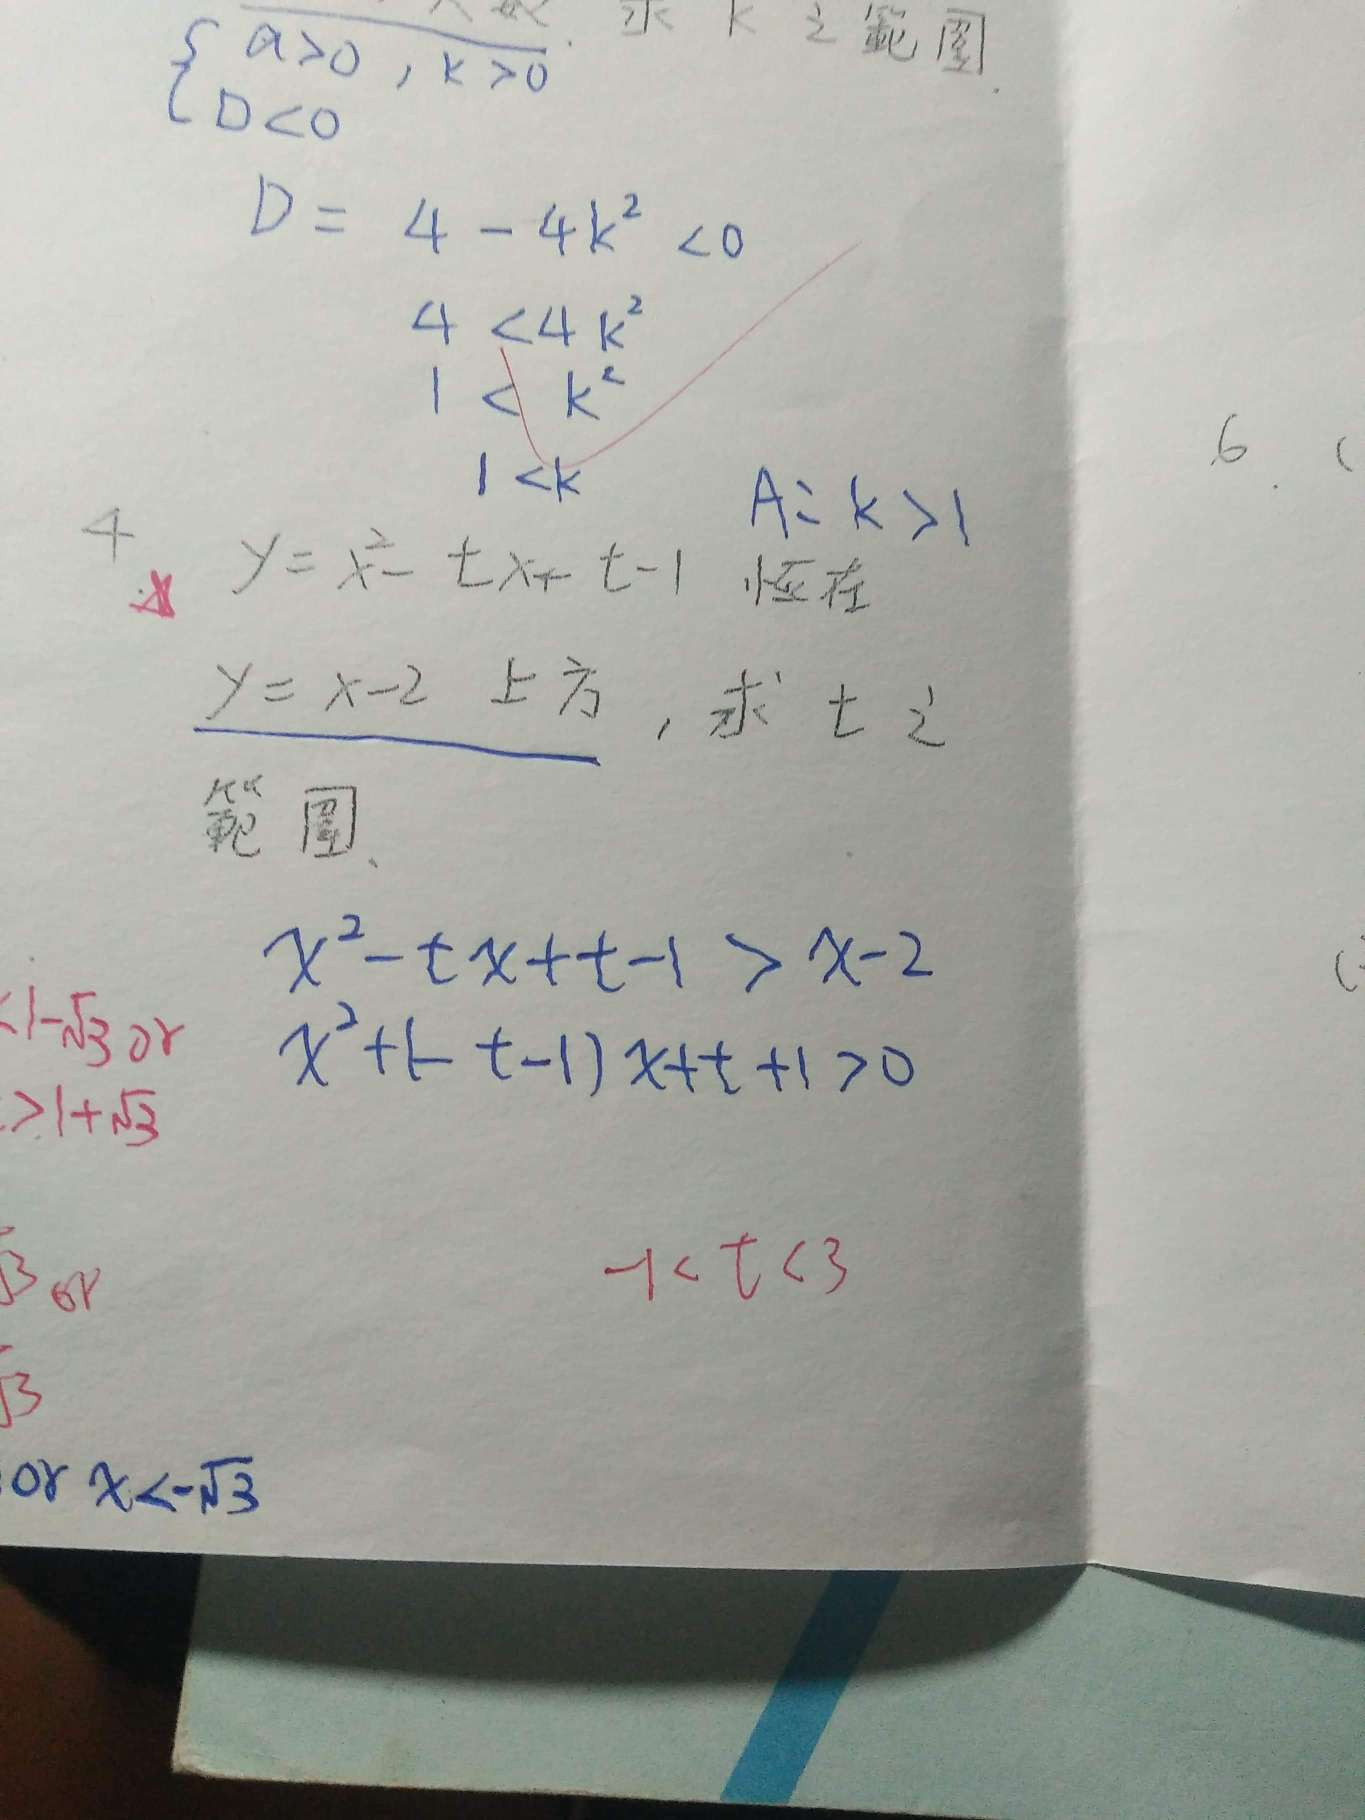 求 k 之範圍.
{ a>0, k>0
D<0
D = 4 - 4k² <0
4 < 4k²
1 < k²
1 < k
A: k>1
4. y = x² - tx + t-1 恆在
y = x-2 上方, 求 t 之
範圍.
x² - tx + t - 1 > x - 2
x² + (-t-1)x + t + 1 > 0
-1 < t < 3
<1-√3 or
>1+√3
√3 or
√3
or x<-√3
6